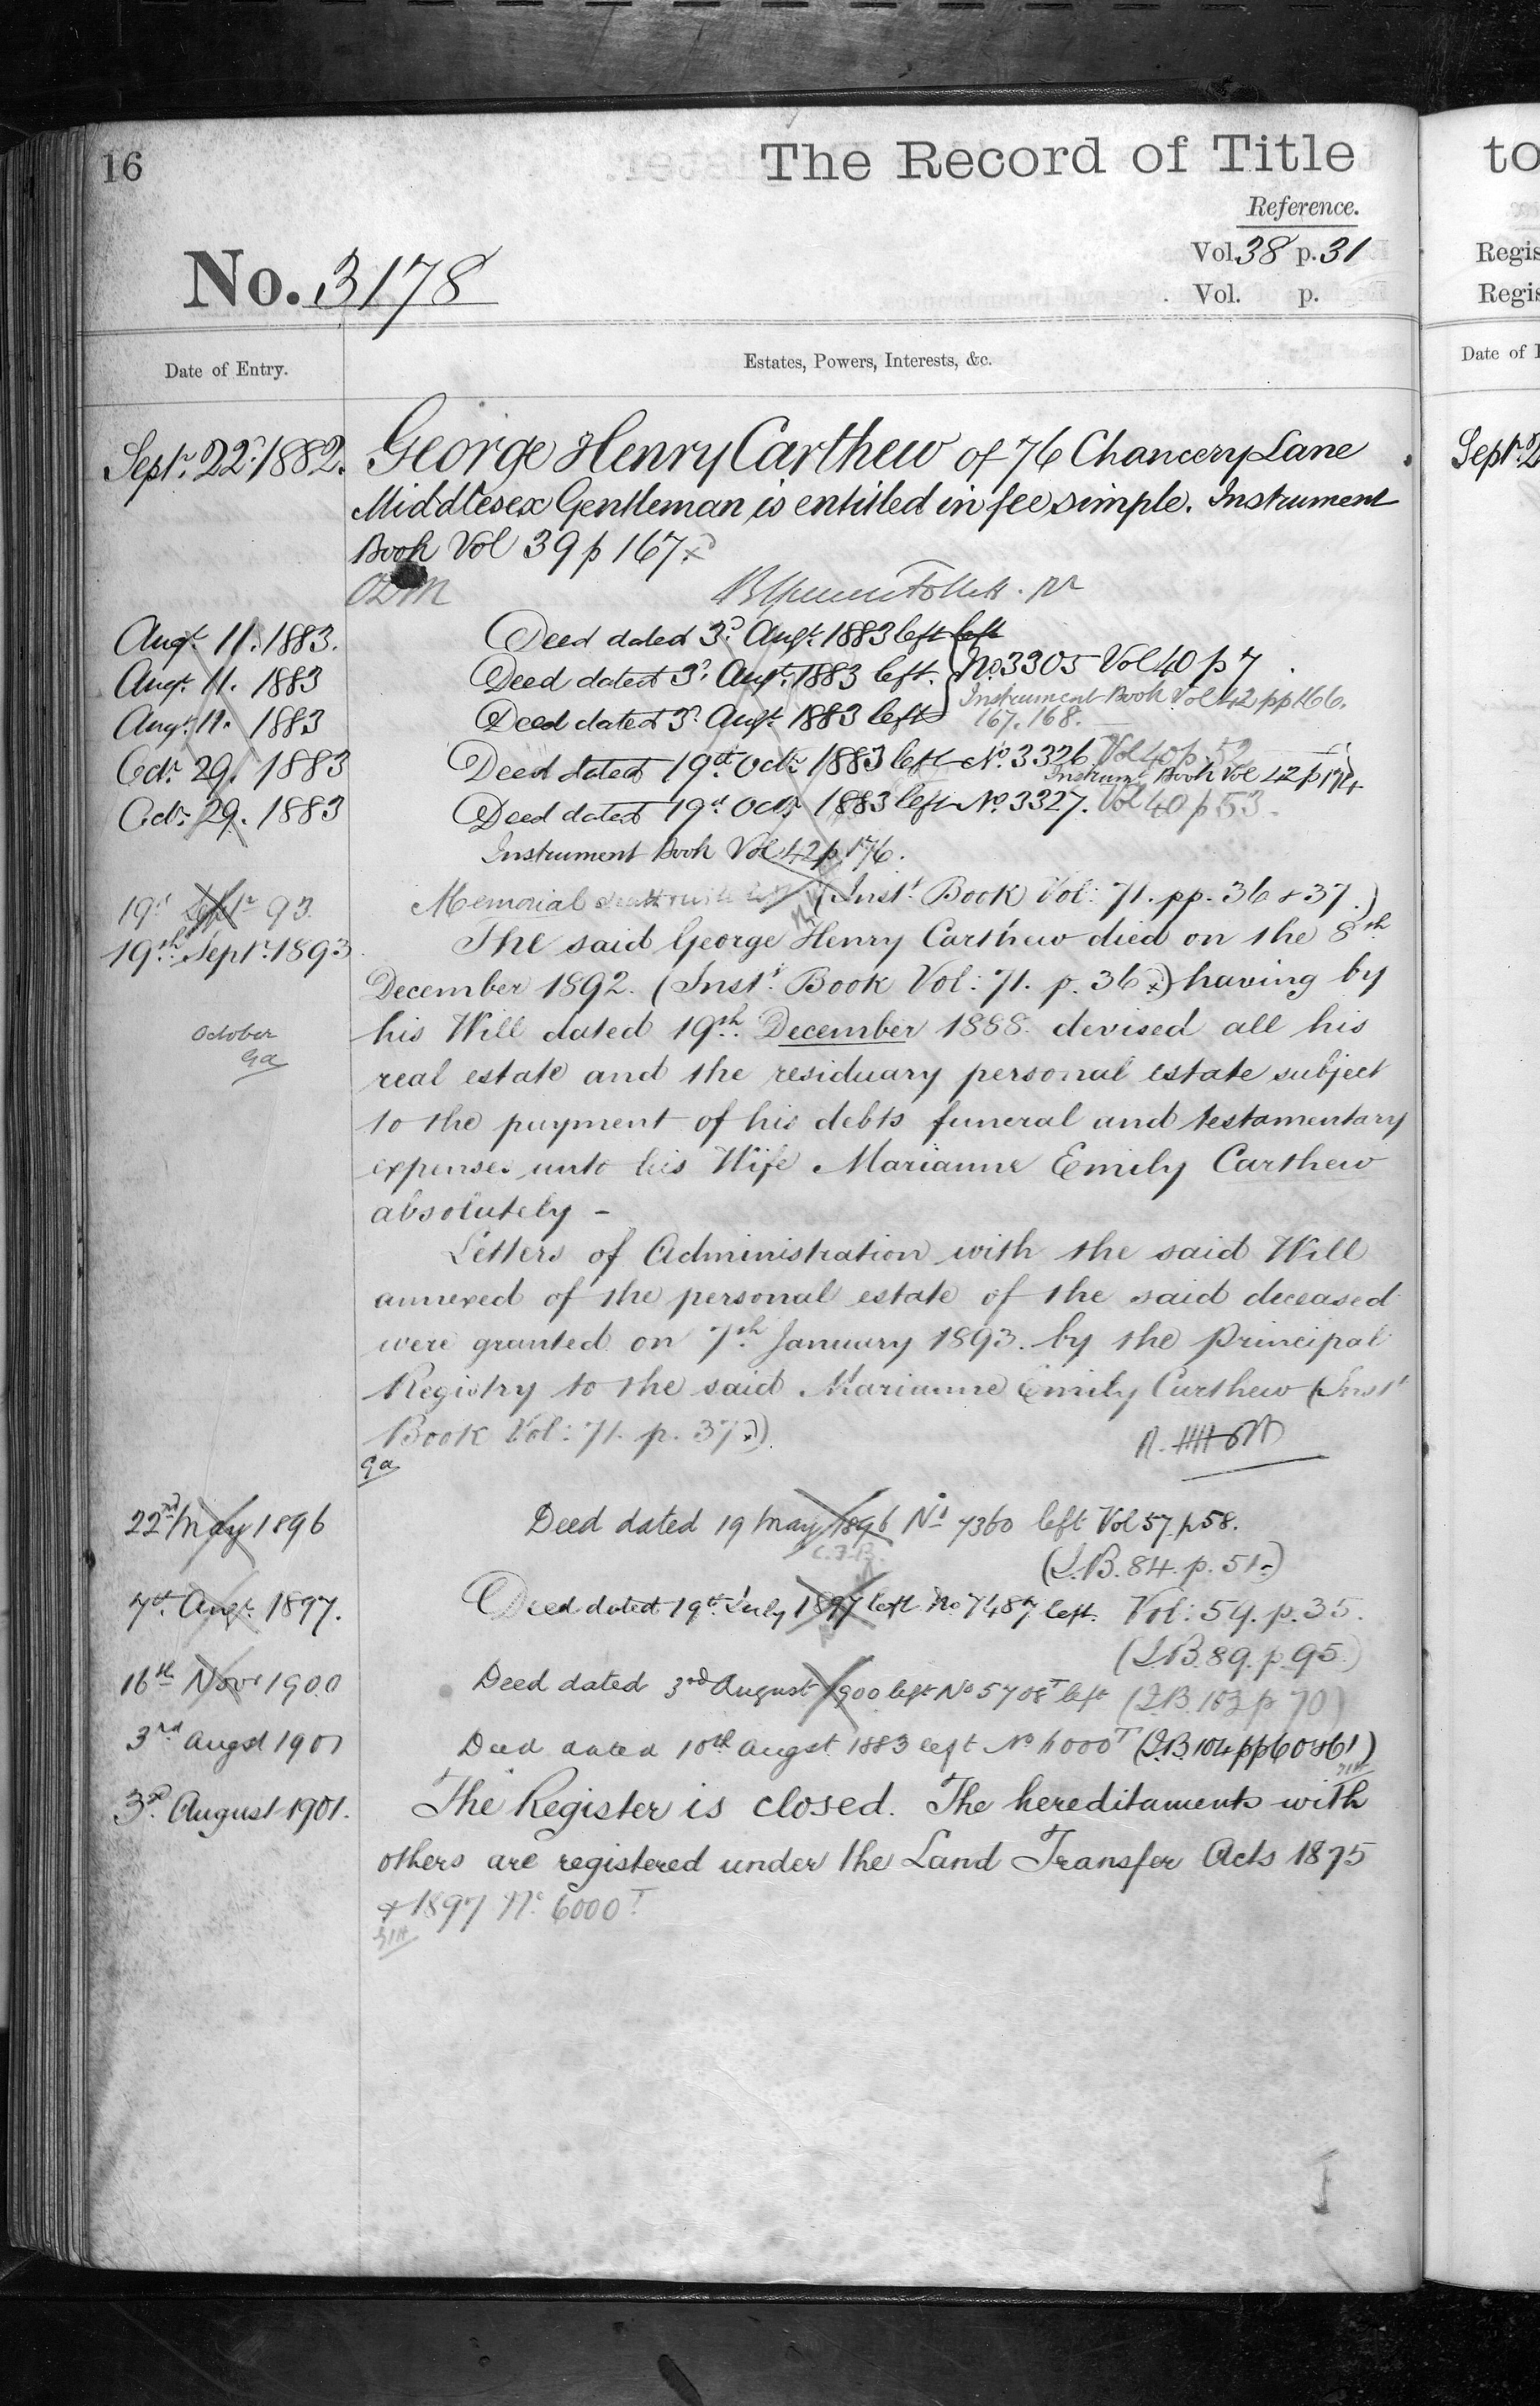 16
The Record of Title
Reference.
Vol. 38 p. 31
Vol. p.
No. 3178
Date of Entry.
Estates, Powers, Interests, &c.
Septr. 22d. 1882.
George Henry Carthew of 76 Chancery Lane
Middlesex Gentleman is entitled in fee simple. Instrument
Book Vol 39 p 167.
Augt. 11. 1883. Deed dated 3d. Augt. 1883 left left
Augt. 11. 1883 Deed dated 3d. Augt. 1883 left. No. 3305 Vol 40 p 7
Augt. 11. 1883 Deed dated 3d. Augt. 1883 left Instrument Book Vol 42 pp 166.
167. 168.
Octr. 29. 1883 Deed dated 19th Octr. 1883 left No. 3326 Vol 40 p 52
Instrumt Book Vol 42 p 174
Octr. 29. 1883 Deed dated 19th Octr. 1883 left No. 3327. Vol 40 p 53.
Instrument Book Vol 42 p 176.
19th Septr 93. Memorial (Inst. Book Vol: 71. pp. 36 & 37.)
19th. Septr. 1893 The said George Henry Carthew died on the 8th
December 1892. (Inst. Book Vol: 71. p. 36.) having by
October his Will dated 19th. December 1888. devised all his
Ga
real estate and the residuary personal estate subject
to the payment of his debts funeral and testamentary
expenses unto his Wife Marianne Emily Carthew
absolutely –
Letters of Administration with the said Will
annexed of the personal estate of the said deceased
were granted on 7th. January 1893. by the Principal
Registry to the said Marianne Emily Carthew (Inst.
Book Vol: 71. p. 37.)
Ga
22nd May 1896 Deed dated 19 May 1896 No 7360 left Vol 57. p 58.
(I.B. 84. p. 51.)
7th. Augt. 1897. Deed dated 19th. July 1897 left No 7487 left. Vol: 59. p. 35.
(I.B. 89. p. 95.)
16th Novr 1900 Deed dated 3rd August 1900 left No 5708T left (I.B. 103 p 70)
3rd Augst 1901 Deed dated 10th Augst 1883 left No 6000T (I.B. 104 pp 60 & 61)
3d. August 1901. The Register is closed. The hereditaments with
others are registered under the Land Transfer Acts 1875
& 1897 No. 6000T
to
Regis
Regis
Date of
Septr. 2